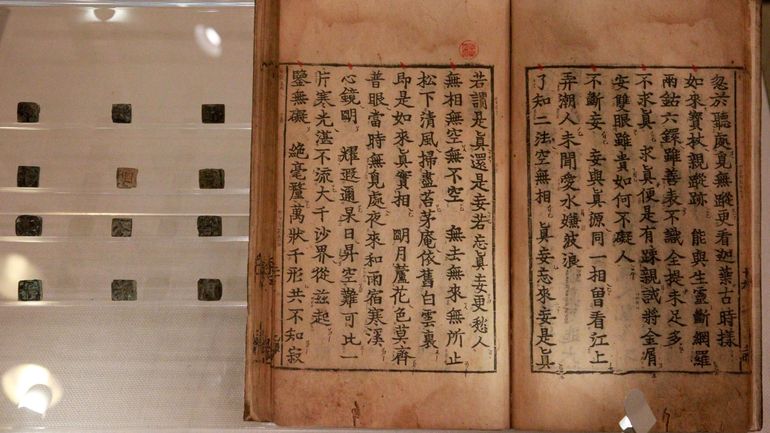 忽於聽處見無蹤更看迦葉古時樣
如來寶杖親蹤跡 能與生靈斷網羅
兩鈷六鐶雖善表不識全提未足多
不求眞 求眞便是有踈親誠將金屑
安雙眼雖貴如何不礙人
不斷妄 妄與眞源同一相留看江上
弄潮人未聞愛水嫌波浪
了知二法空無相 眞妄忘來妄是眞
若謂是眞還是妄若忘眞妄更愁人
無相無空無不空 無去無來無所止
松下清風掃盡苔茅庵依舊白雲裏
即是如來眞實相 明月蘆花色莫齊
普眼當時無見處夜來和雨宿寒溪
心鏡明 耀遐邇杲日昇空難可比一
片寒光湛不流大千沙界從玆起
鑒無礙 絶毫釐萬狀千形共不知寂